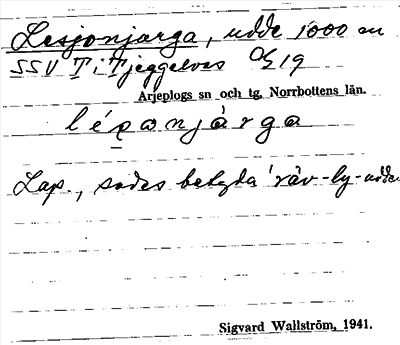 Lesjonjarga, udde 1000 m
SSV T i Tjeggelvas 19
Arjeplogs sn och tg, Norrbottens län.
Lap., sades betyda 'räv-by-udde
Sigvard Wallström, 1941.